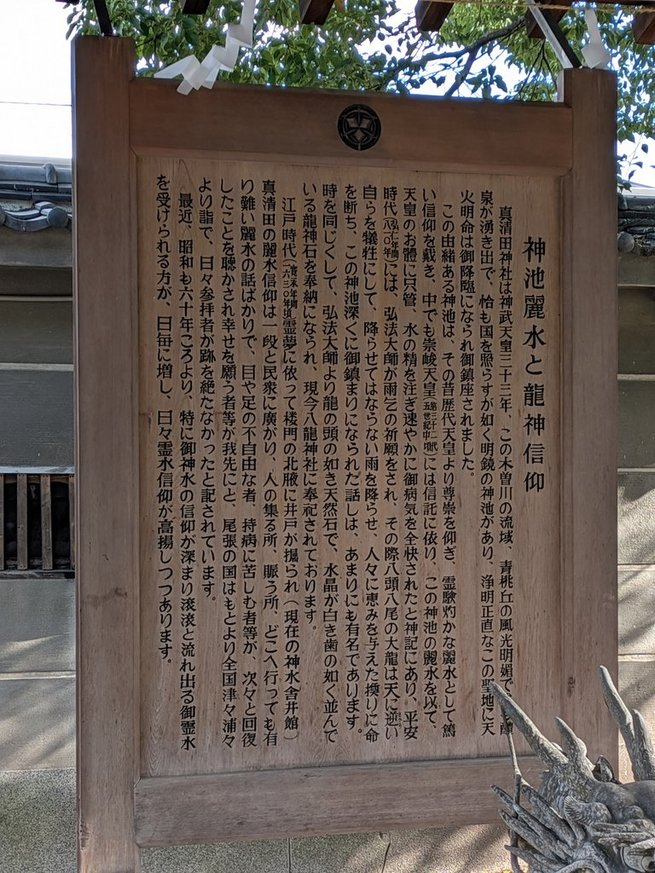 神池麗水と龍神信仰
真清田神社は神武天皇三十三年、この木曽川の流域、青桃丘の風光明媚で
泉が湧き出で、恰も国を照らすが如く明鏡の神池があり、浄明正直なこの聖地に天
火明命は御降臨になられ御鎮座されました。
この由緒ある神池は、その昔歴代天皇より尊崇を仰ぎ、霊験灼かな麗水として篤
い信仰を戴き、中でも崇峻天皇(第三十二代)には信託に依り、この神池の麗水を以て、
天皇のお體に只管、水の精を注ぎ速やかに御病気を全快されたと神記にあり、平安
時代には、弘法大師が雨乞の祈願をされ、その際八頭八尾の大龍は天に逆い
自らを犠牲にして、降らせてはならない雨を降らせ、人々に恵みを与えた換りに命
を断ち、この神池深くに御鎮まりになられた話しは、あまりにも有名であります。
時を同じくして、弘法大師より龍の頭の如き天然石で、水晶が白き歯の如く並んで
いる龍神石を奉納になられ、現今八龍神社に奉祀されております。
江戸時代(寛永年間 一六三〇年頃)霊夢に依って楼門の北腋に井戸が掘られ(現在の神水舎井館)
真清田の麗水信仰は一段と民衆に廣がり、人の集る所、賑う所、どこへ行っても有
り難い麗水の話ばかりで、目や足の不自由な者、持病に苦しむ者等が、次々と回復
したことを聴かされ幸せを願う者等が我先にと、尾張の国はもとより全国津々浦々
より詣で、日々参拝者が跡を絶たなかったと記されています。
最近、昭和も六十年ころより、特に御神水の信仰が深まり滾滾と流れ出る御霊水
を受けられる方が、日毎に増し、日々霊水信仰が高揚しつつあります。